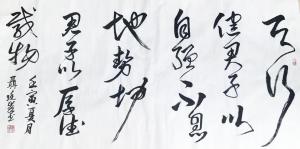 天行
健君子以
自强不息
地势坤
君子以厚德
載物
壬寅夏月